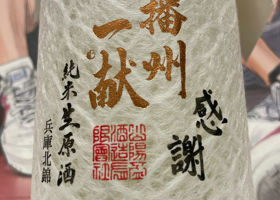 感謝
播州
一献
純米生原酒
兵庫北錦
山陽盃
酒造有
限会社